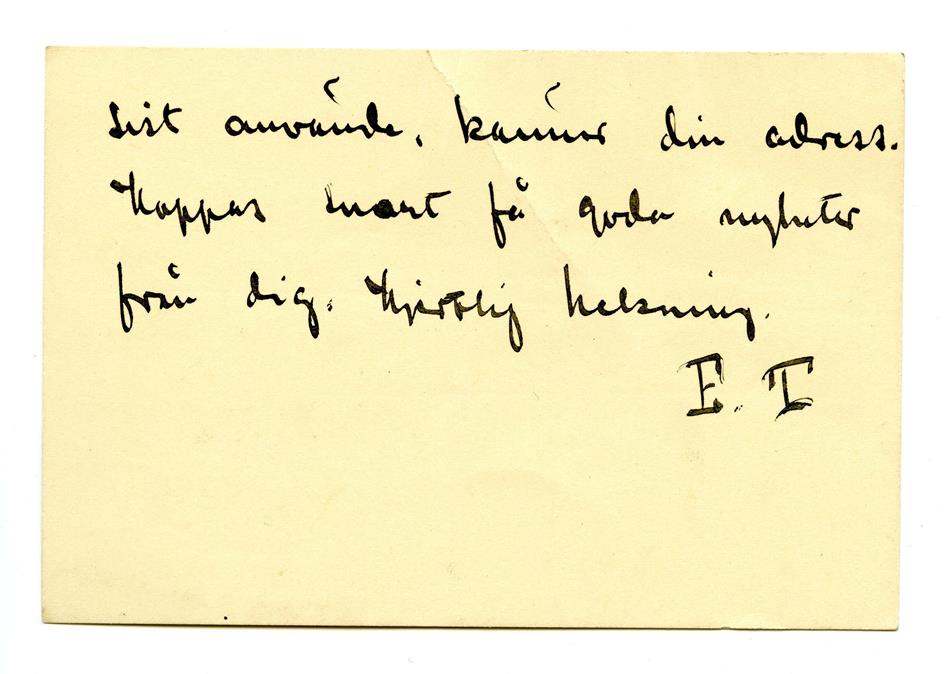 sist använde, känner din adress.
Hoppas snart få goda nyheter
från dig. Hjertlig helsning.
E. T